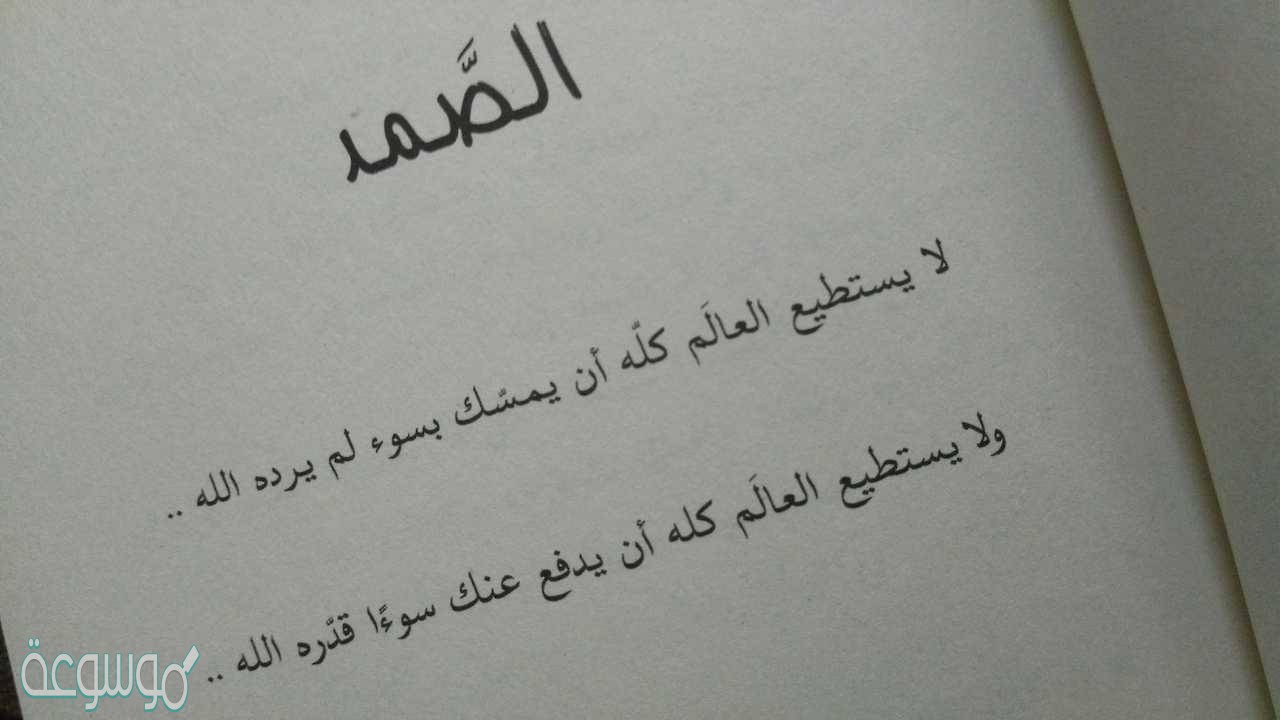 الصَّمد
لا يستطيع العالَم كلّه أن يمسّك بسوء لم يرده الله ..
ولا يستطيع العالَم كله أن يدفع عنك سوءًا قدّره الله ..
موسوعة